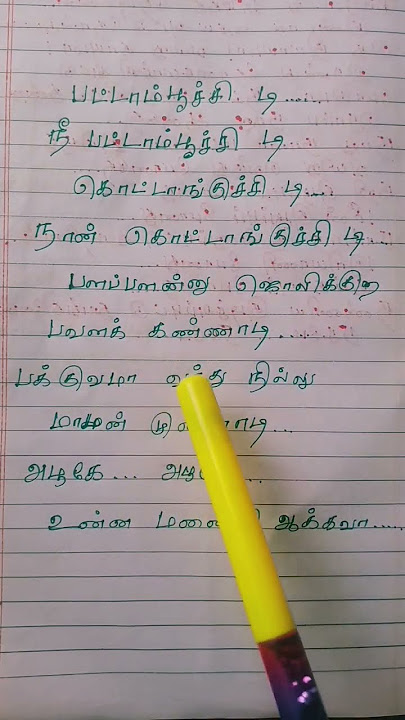 பட்டாம்பூச்சி டி.....
நீ பட்டாம்பூச்சி டி..
கொட்டாங்குச்சி டி....
நான் கொட்டாங்குச்சி டி...
பளப்பளன்னு ஜொலிக்குற
பவளக் கண்ணாடி.....
பக்குவமா வந்து நில்லு
மாமன்
அழகே... அழகே...
உன்ன ஆக்கவா.....